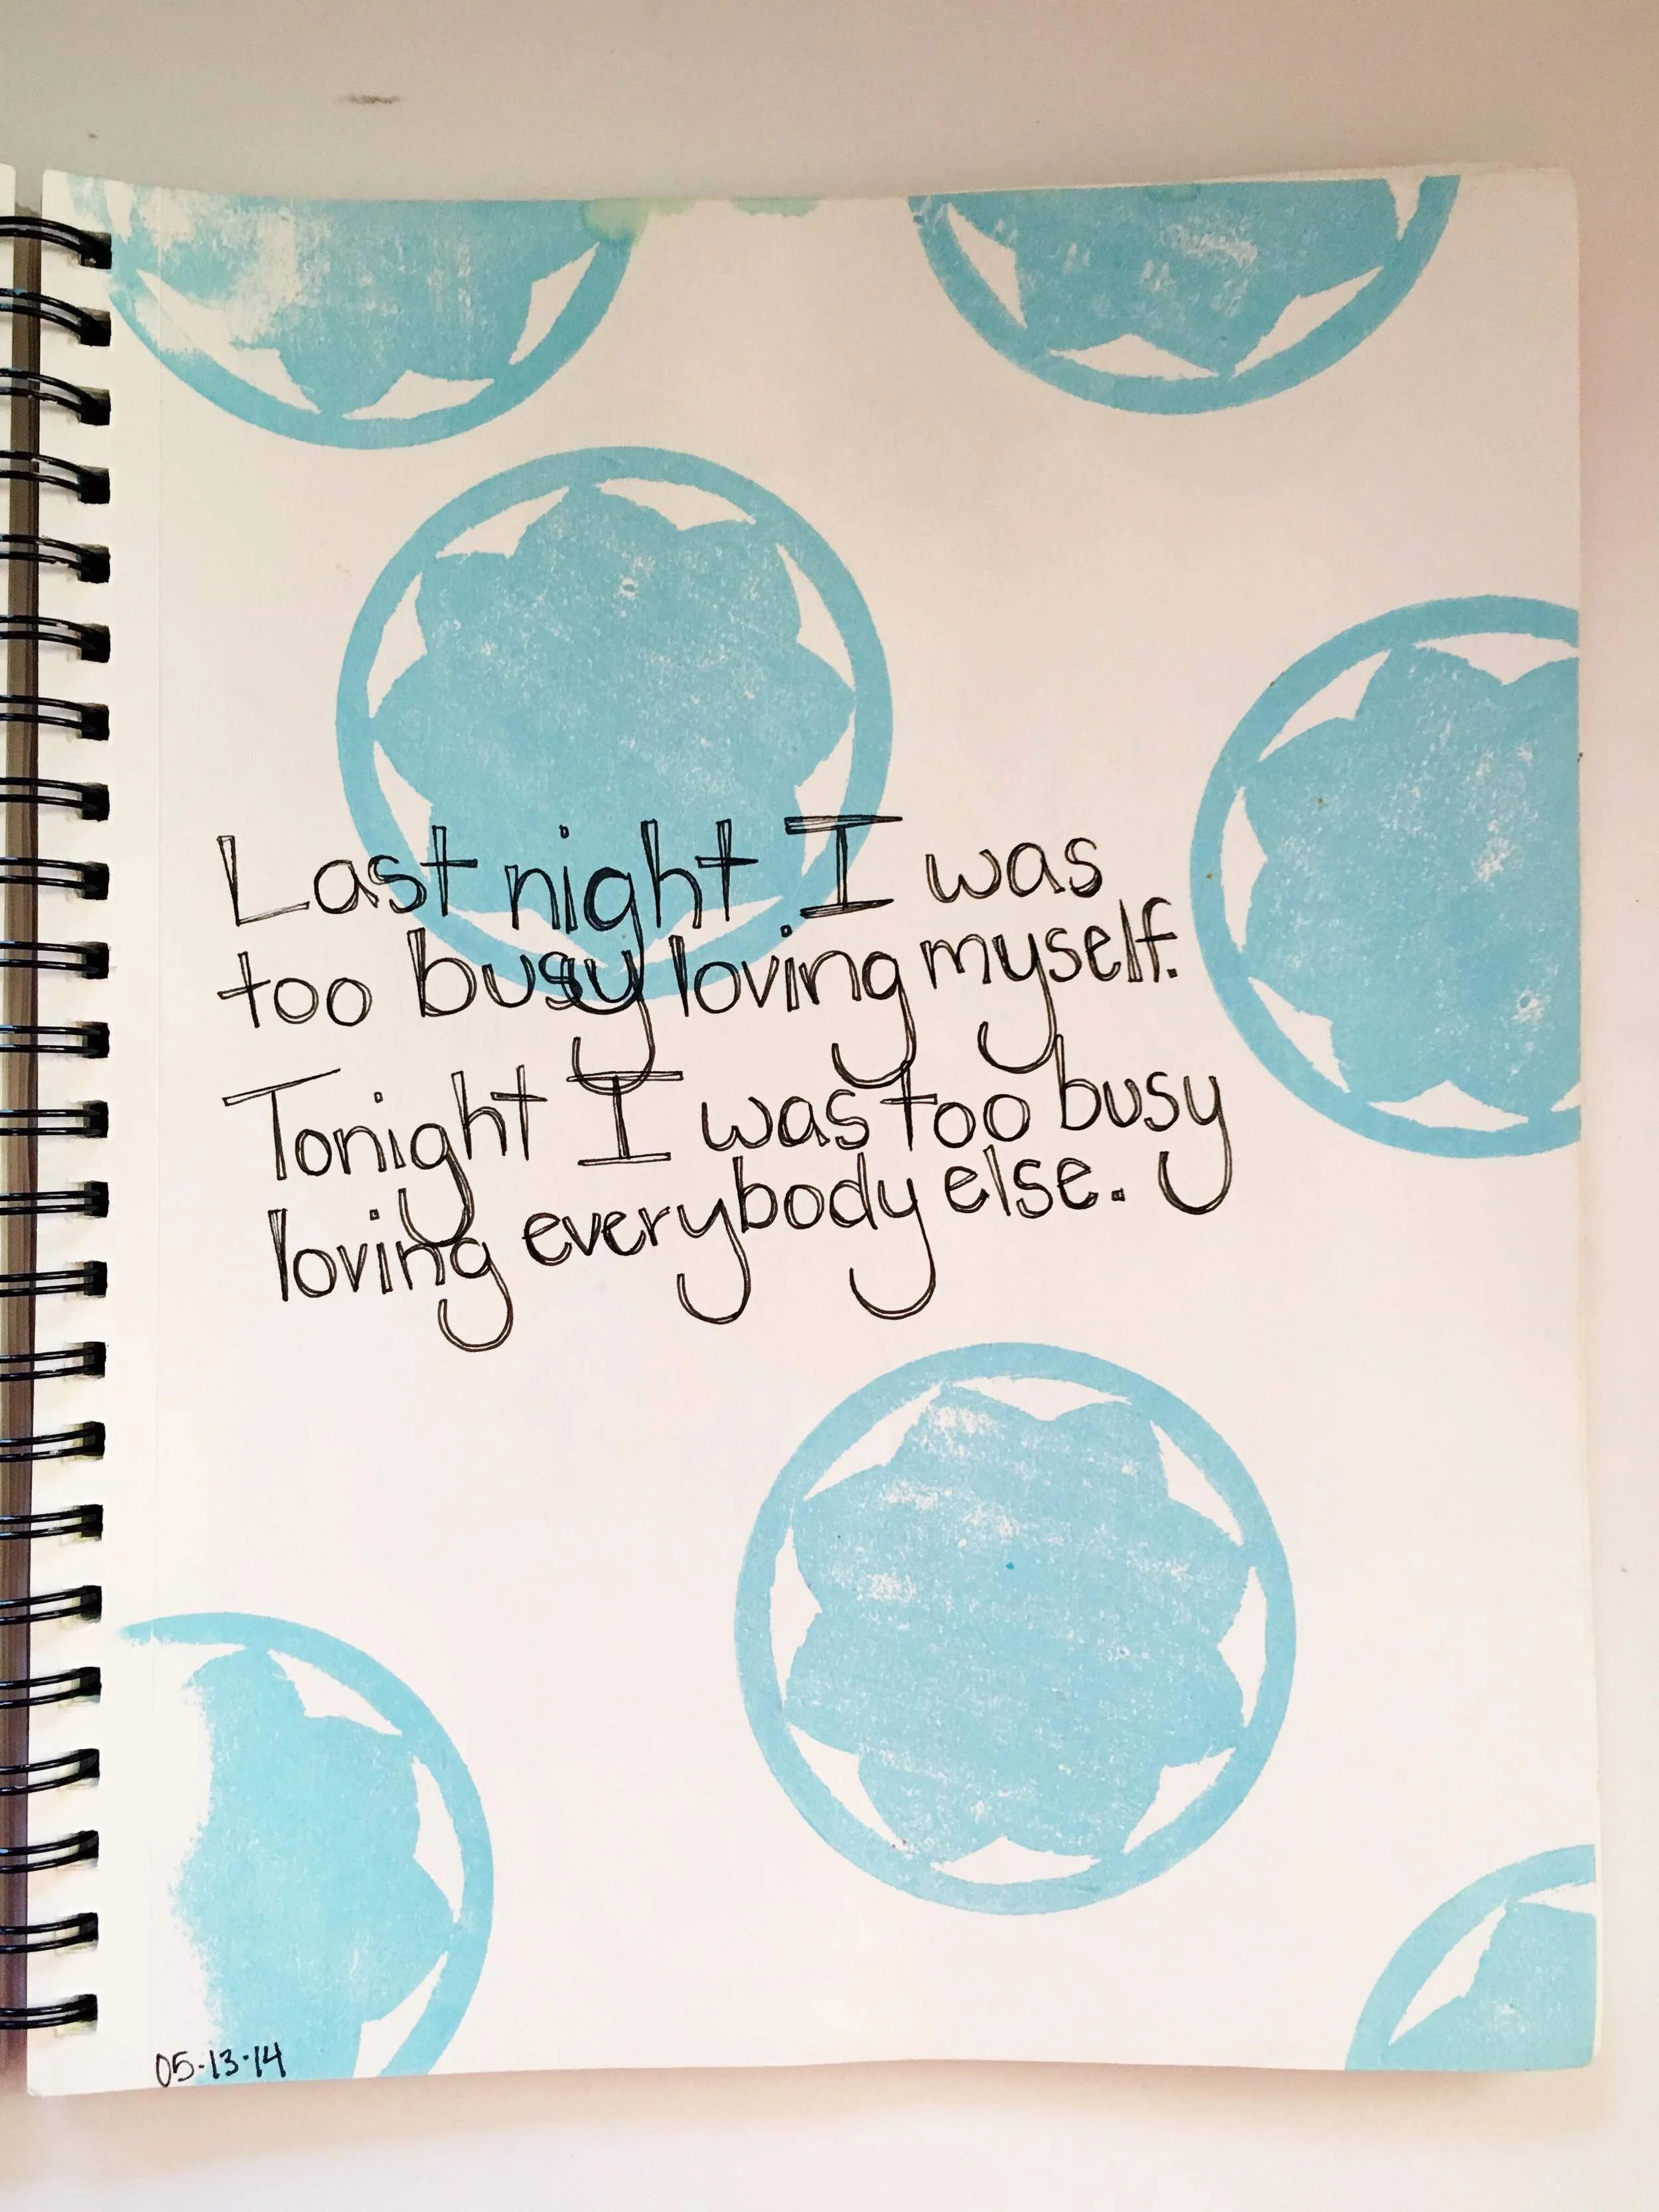 Last night I was
too busy loving myself.
Tonight I was too busy
loving everybody else.
05-13-14